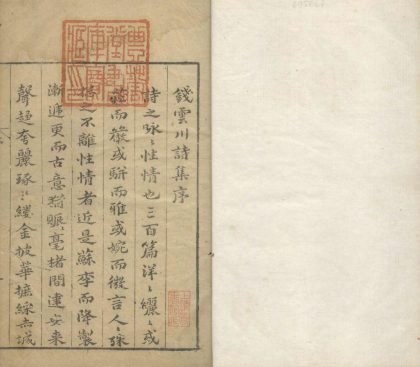 錢雲川詩集序
詩之咏〻性情也三百篇洋〻纚〻或
而嚴或駢而雅或婉而微言人〻殊
之不離性情者近是蘇李而降製
漸遞更而古意猶賑毫楮間建安来
聲趋夸麗琢〻縷金披華摭綵赤城